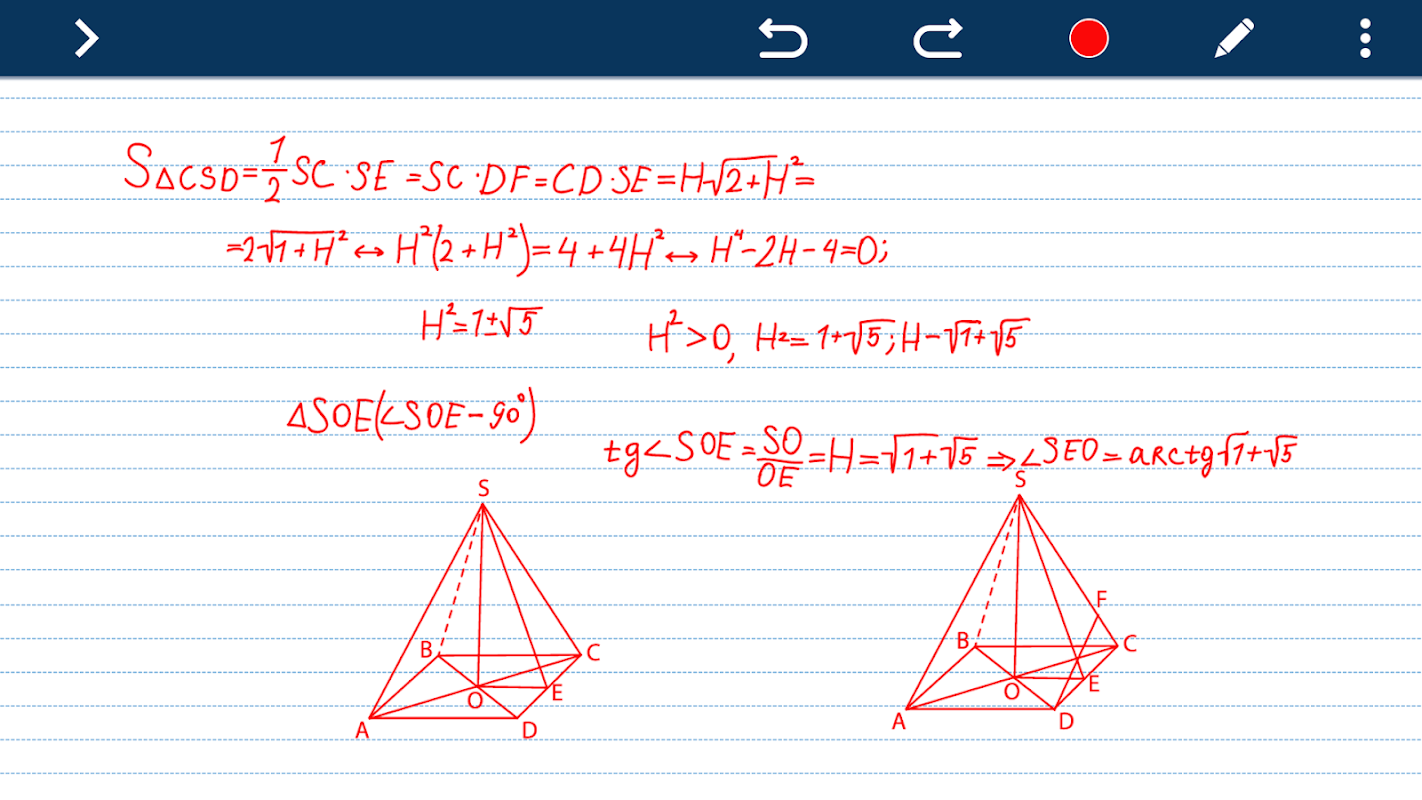 S△CSD=1/2 SC·SE=SC·DF=CD·SE=H√2+H²=
=2√1+H²↔H²(2+H²)=4+4H²↔H⁴-2H-4=0;
H²=1±√5 H²>0, H2=1+√5;H-√1+√5
△SOE(∠SOE-90°)
tg∠SOE=SO/OE=H=√1+√5⇒∠SEO=aRctg√1+√5
S S
F
B C B C
O E O E
A D A D